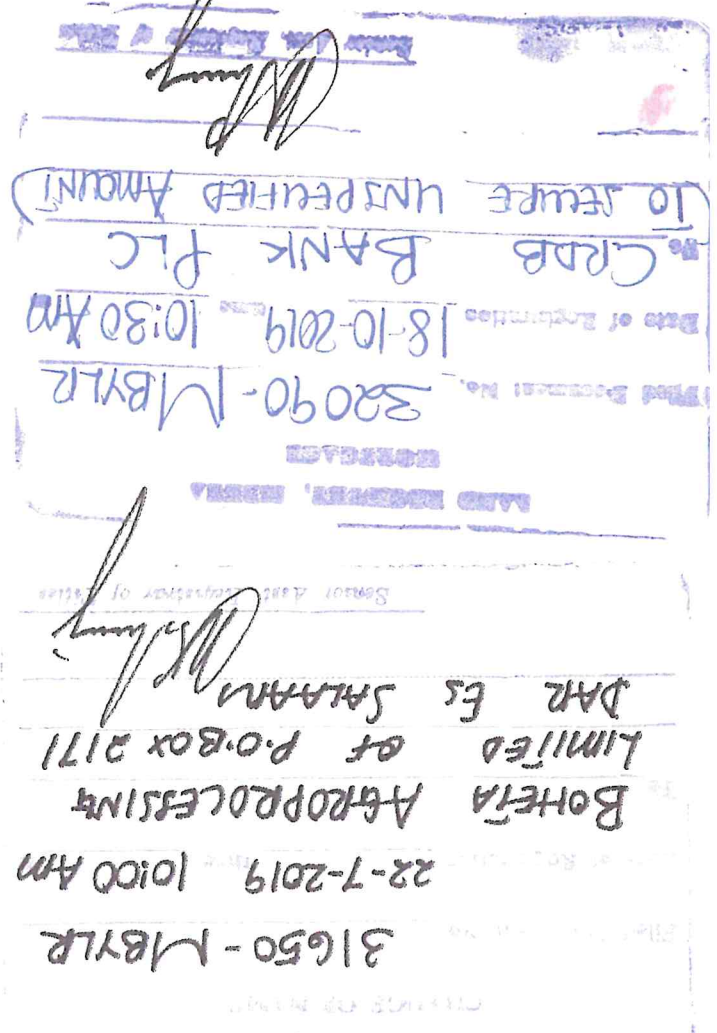 31650 - MBYLR
22-7-2019 10:00 Am
BOHETA AGROPROCESSING
LIMITED OF P.O.BOX 2171
DAR ES SALAAM
Senior Asst. Registrar of Titles
LAND REGISTRY, MBEYA
MORTGAGE
Filed Document No. 32090 - MBYLR
Date of Registration 18-10-2019 time 10:30 Am
To CRDB BANK PLC
(TO SECURE UNSPECIFIED AMOUNT)